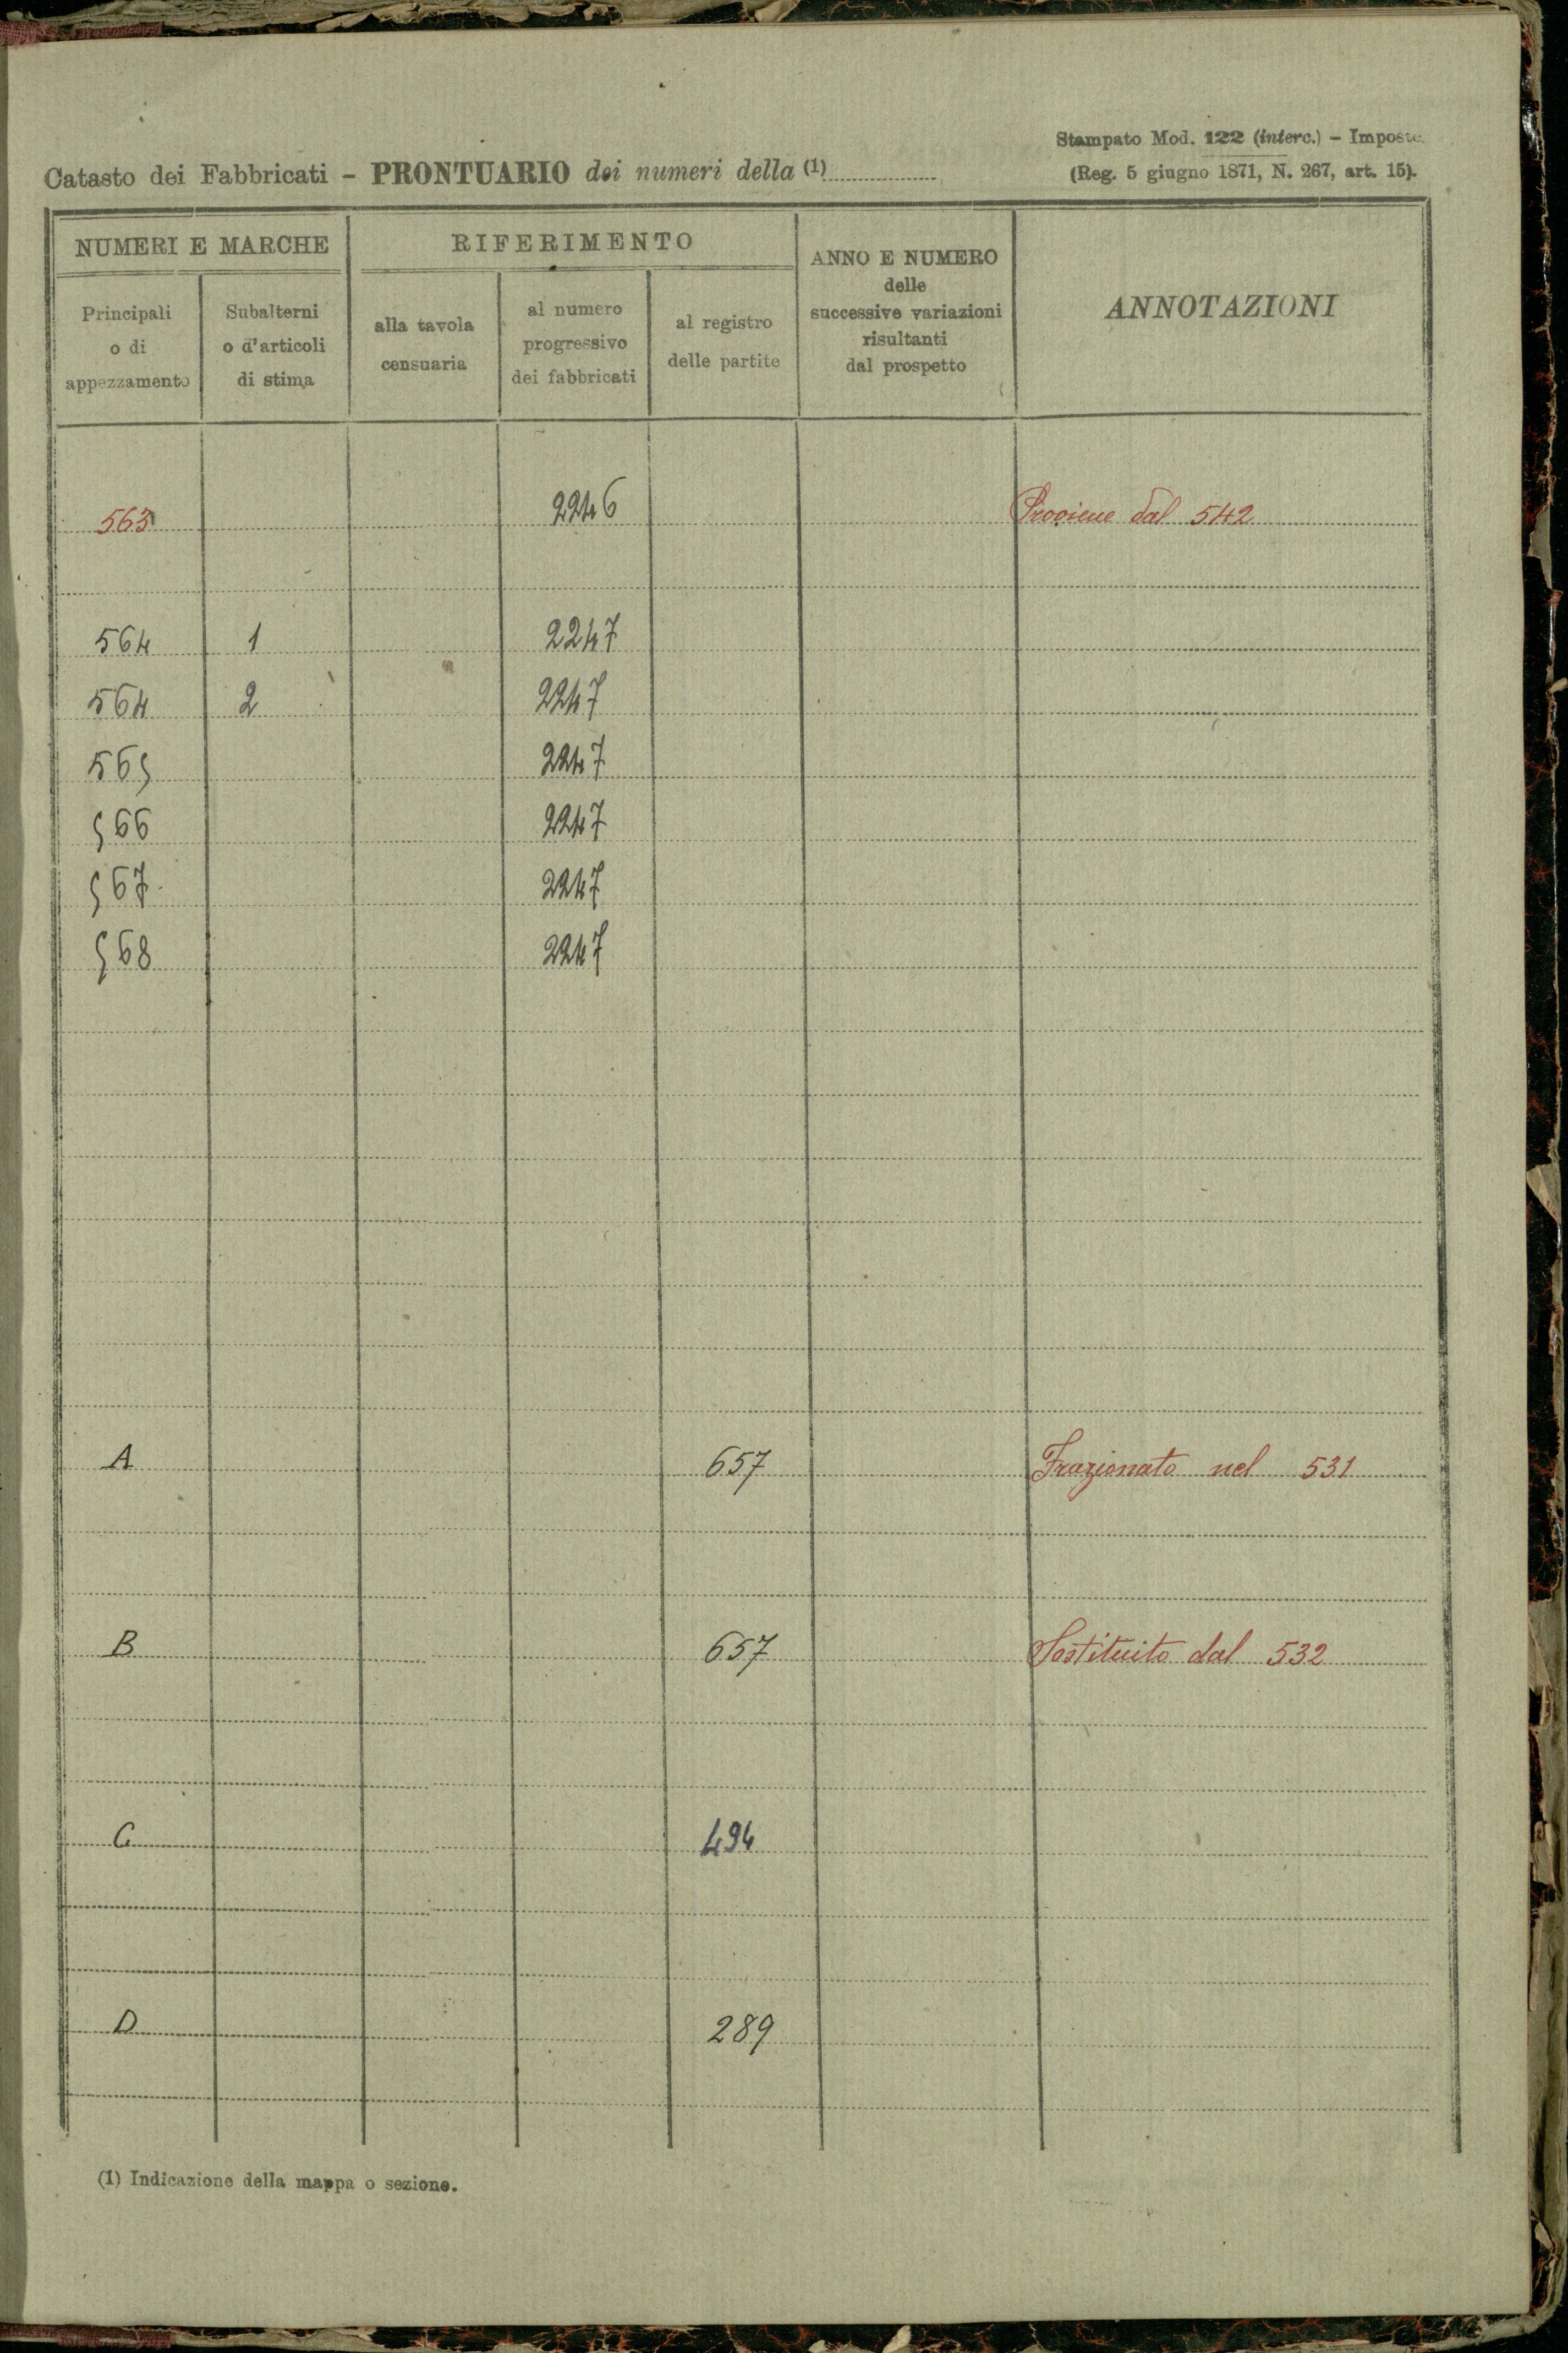 Stampato Mod. 122 (interc.) - Imposte
Catasto dei Fabbricati - PRONTUARIO dei numeri della (1)
(Reg. 5 giugno 1871, N. 267, art. 15).
NUMERI E MARCHE
RIFERIMENTO
ANNO E NUMERO
delle
successive variazioni
risultanti
dal prospetto
ANNOTAZIONI
Principali
o di
appezzamento
Subalterni
o d'articoli
di stima
alla tavola
censuaria
al numero
progressivo
dei fabbricati
al registro
delle partite
563 2246 Proviene dal 542
564 1 2247
564 2 2247
565 2247
566 2247
567 2247
568 2247
A 657 Frazionato nel 531
B 657 Sostituito dal 532
C 494
D 289
(1) Indicazione della mappa o sezione.